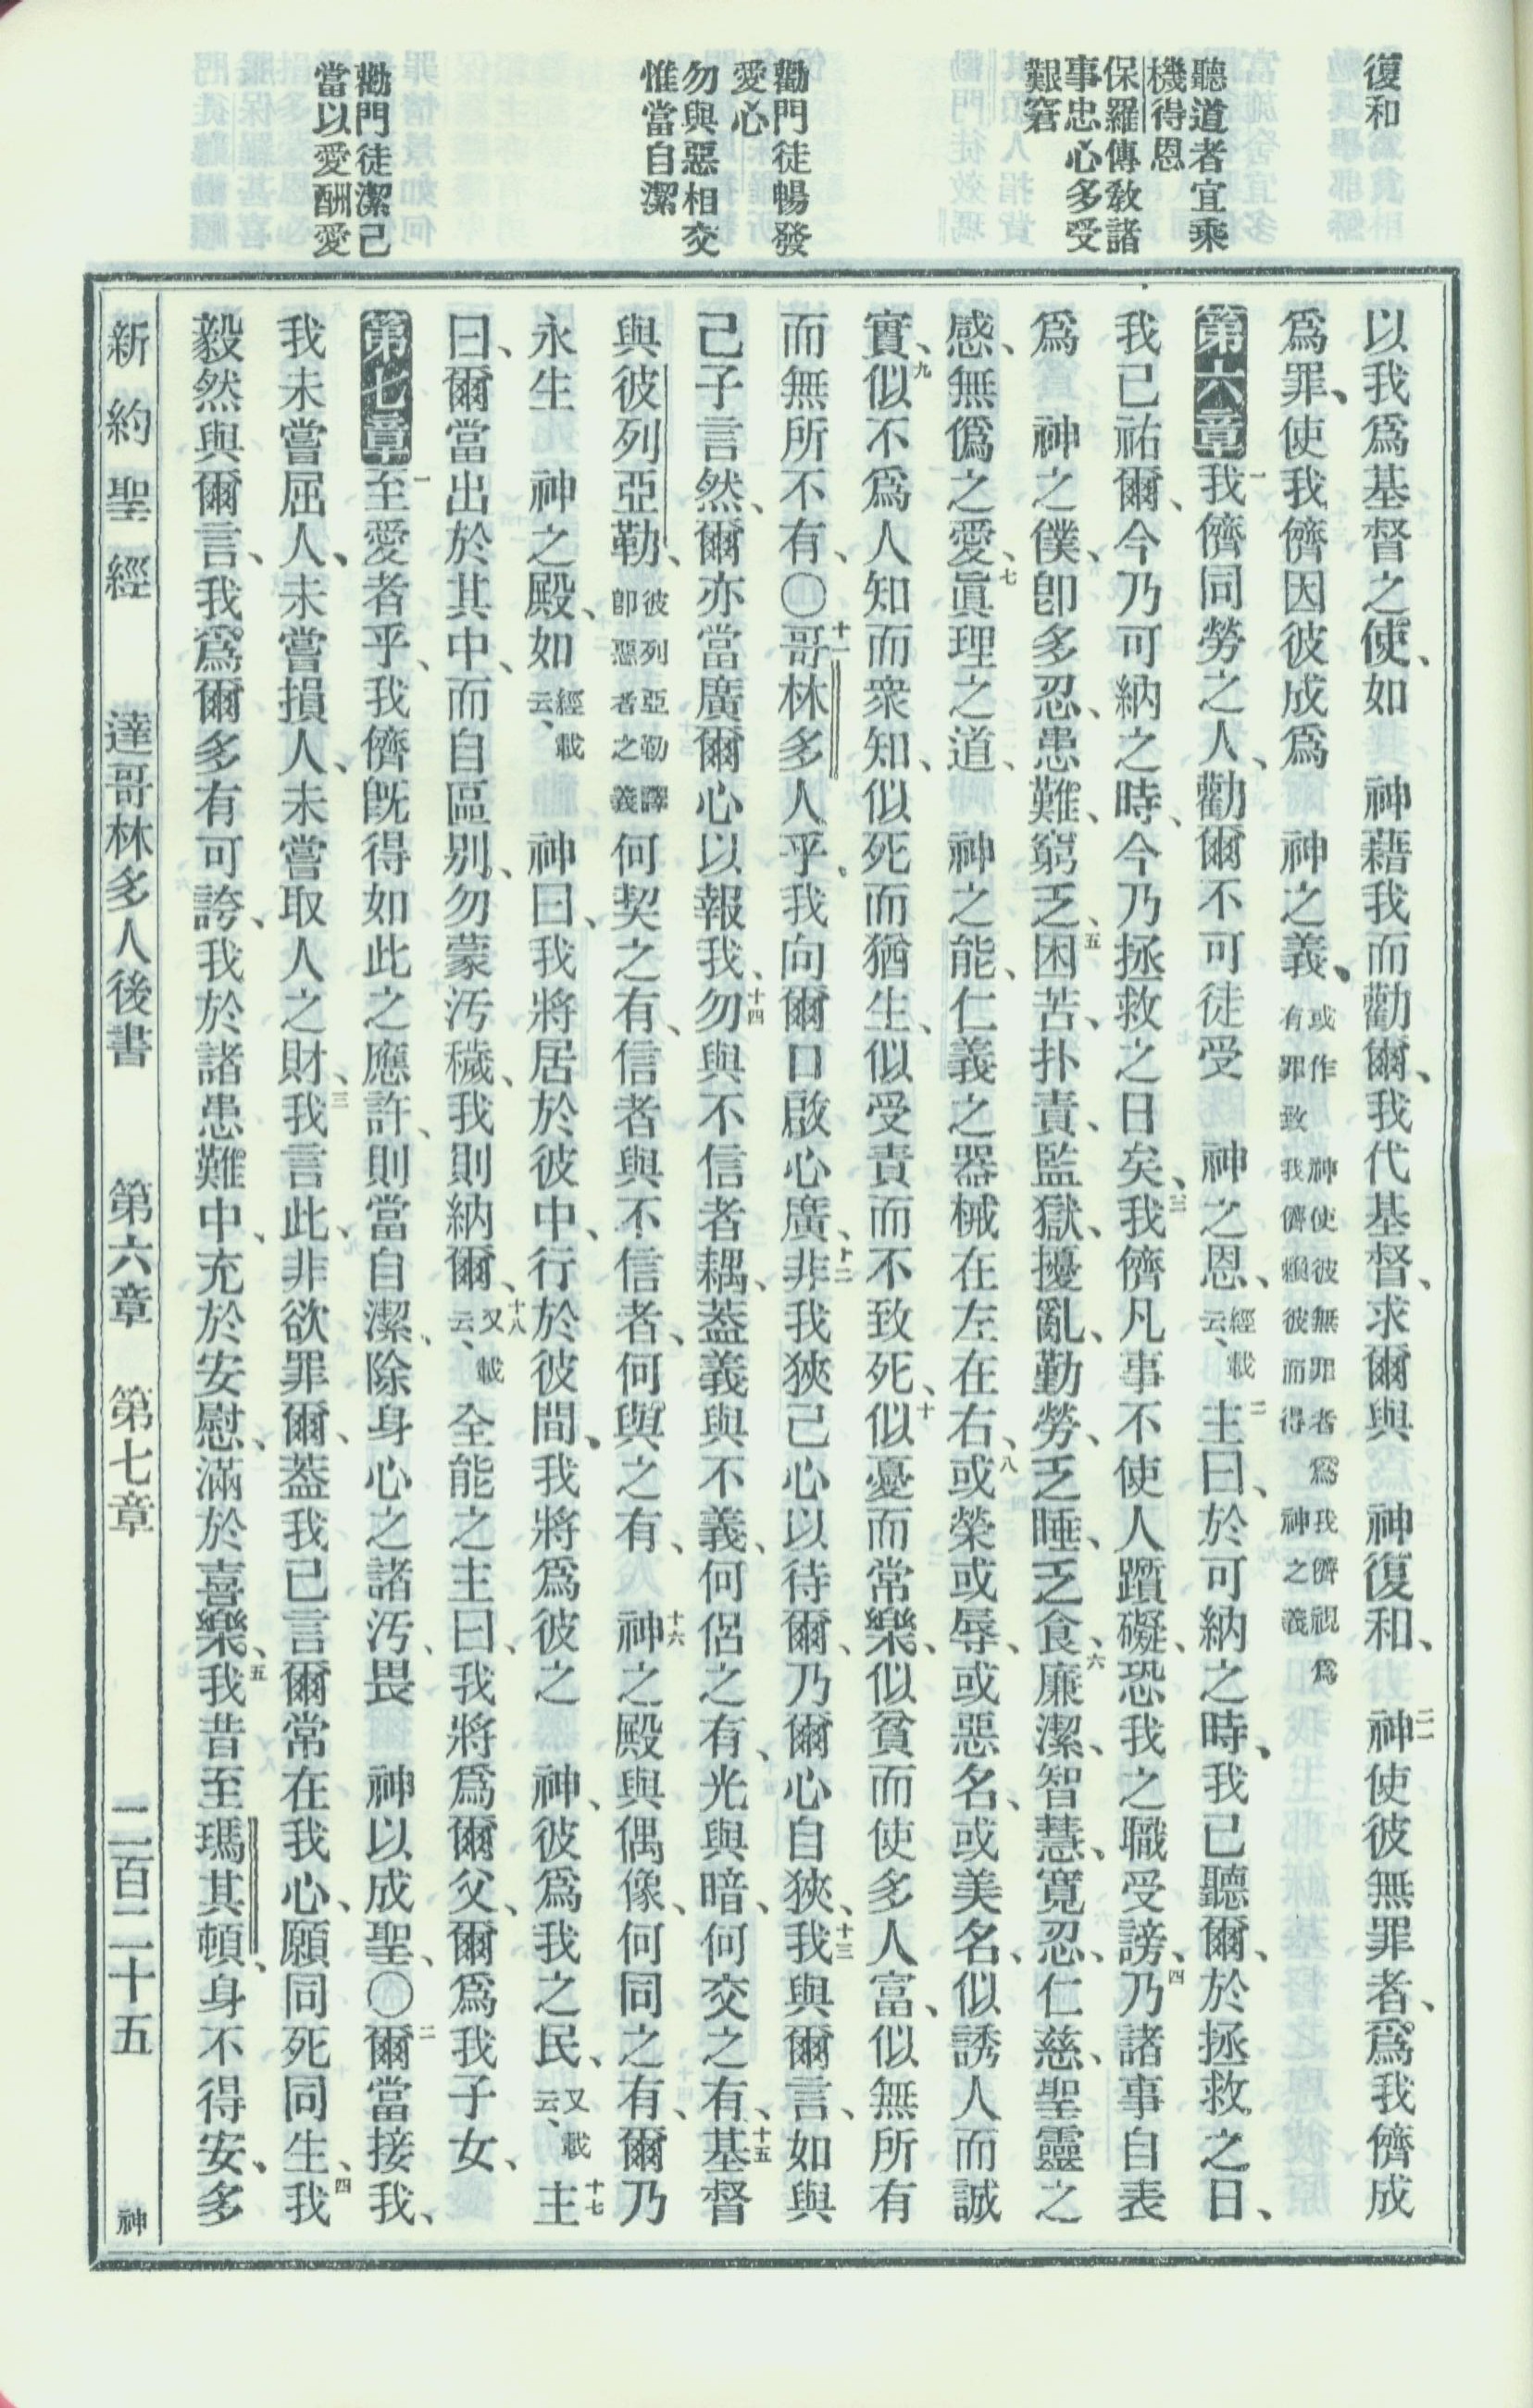 復和
聽道者宜乘
機得恩
保羅傳敎諸
事忠心多受
艱窘
勸門徒暢發
愛心
勿與惡相交
惟當自潔
勸門徒潔己
當以愛酬愛
以我爲基督之使、如　神藉我而勸爾、我代基督、求爾與　神復和、二一神使彼無罪者、爲我儕成
爲罪、使我儕因彼成爲　神之義、或作神使彼無罪者爲我儕視爲有罪致我儕賴彼而得神之義
第六章一我儕同勞之人、勸爾不可徒受　神之恩、經載云、二主曰、於可納之時、我已聽爾、於拯救之日、
我已祐爾、今乃可納之時、今乃拯救之日矣、三我儕凡事不使人躓礙、恐我之職受謗、四乃諸事自表
爲　神之僕、卽多忍、患難、窮乏、五困苦、扑責、監獄、擾亂、勤勞、乏睡、乏食、六廉潔、智慧、寬忍、仁慈、聖靈之
感、無僞之愛、七眞理之道、　神之能、仁義之器械在左在右、八或榮或辱、或惡名、或美名、似誘人而誠
實、九似不爲人知而衆知、似死而猶生、似受責而不致死、十似憂而常樂、似貧而使多人富、似無所有
而無所不有、〇十一哥林多人乎、我向爾口啟心廣、十二非我狹己心以待爾、乃爾心自狹、十三我與爾言、如與
己子言然、爾亦當廣爾心以報我、十四勿與不信者耦、蓋義與不義、何侶之有、光與暗、何交之有、十五基督
與彼列亞勒、彼列亞勒譯卽惡者之義何契之有、信者與不信者、何與之有、十六神之殿與偶像、何同之有、爾乃
永生　神之殿、如經載云、　神曰、我將居於彼中、行於彼間、我將爲彼之　神、彼爲我之民、又載云、十七主
曰、爾當出於其中、而自區別、勿蒙汚穢、我則納爾、十八又載云、全能之主曰、我將爲爾父、爾爲我子女、
第七章一至愛者乎、我儕旣得如此之應許、則當自潔、除身心之諸汚、畏　神以成聖、〇二爾當接我、
我未嘗屈人、未嘗損人、未嘗取人之財、三我言此、非欲罪爾、蓋我已言爾常在我心、願同死同生、四我
毅然與爾言、我爲爾多有可誇、我於諸患難中、充於安慰、滿於喜樂、五我昔至瑪其頓、身不得安、多
新約聖經　達哥林多人後書　第六章　第七章　二百二十五　神